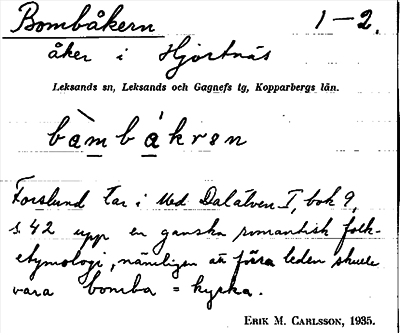 Bombåkern 1-2.
åker i Hjortnäs
Leksands sn, Leksands och Gagnefs tg, Kopparbergs län.
bàmbákrən
Forslund tar i Med Dalälven I, bok 9,
s. 42 upp en ganska romantisk folk-
etymologi, nämligen att förra leden skulle
vara bomba = kyrka.
ERIK M. CARLSSON, 1935.